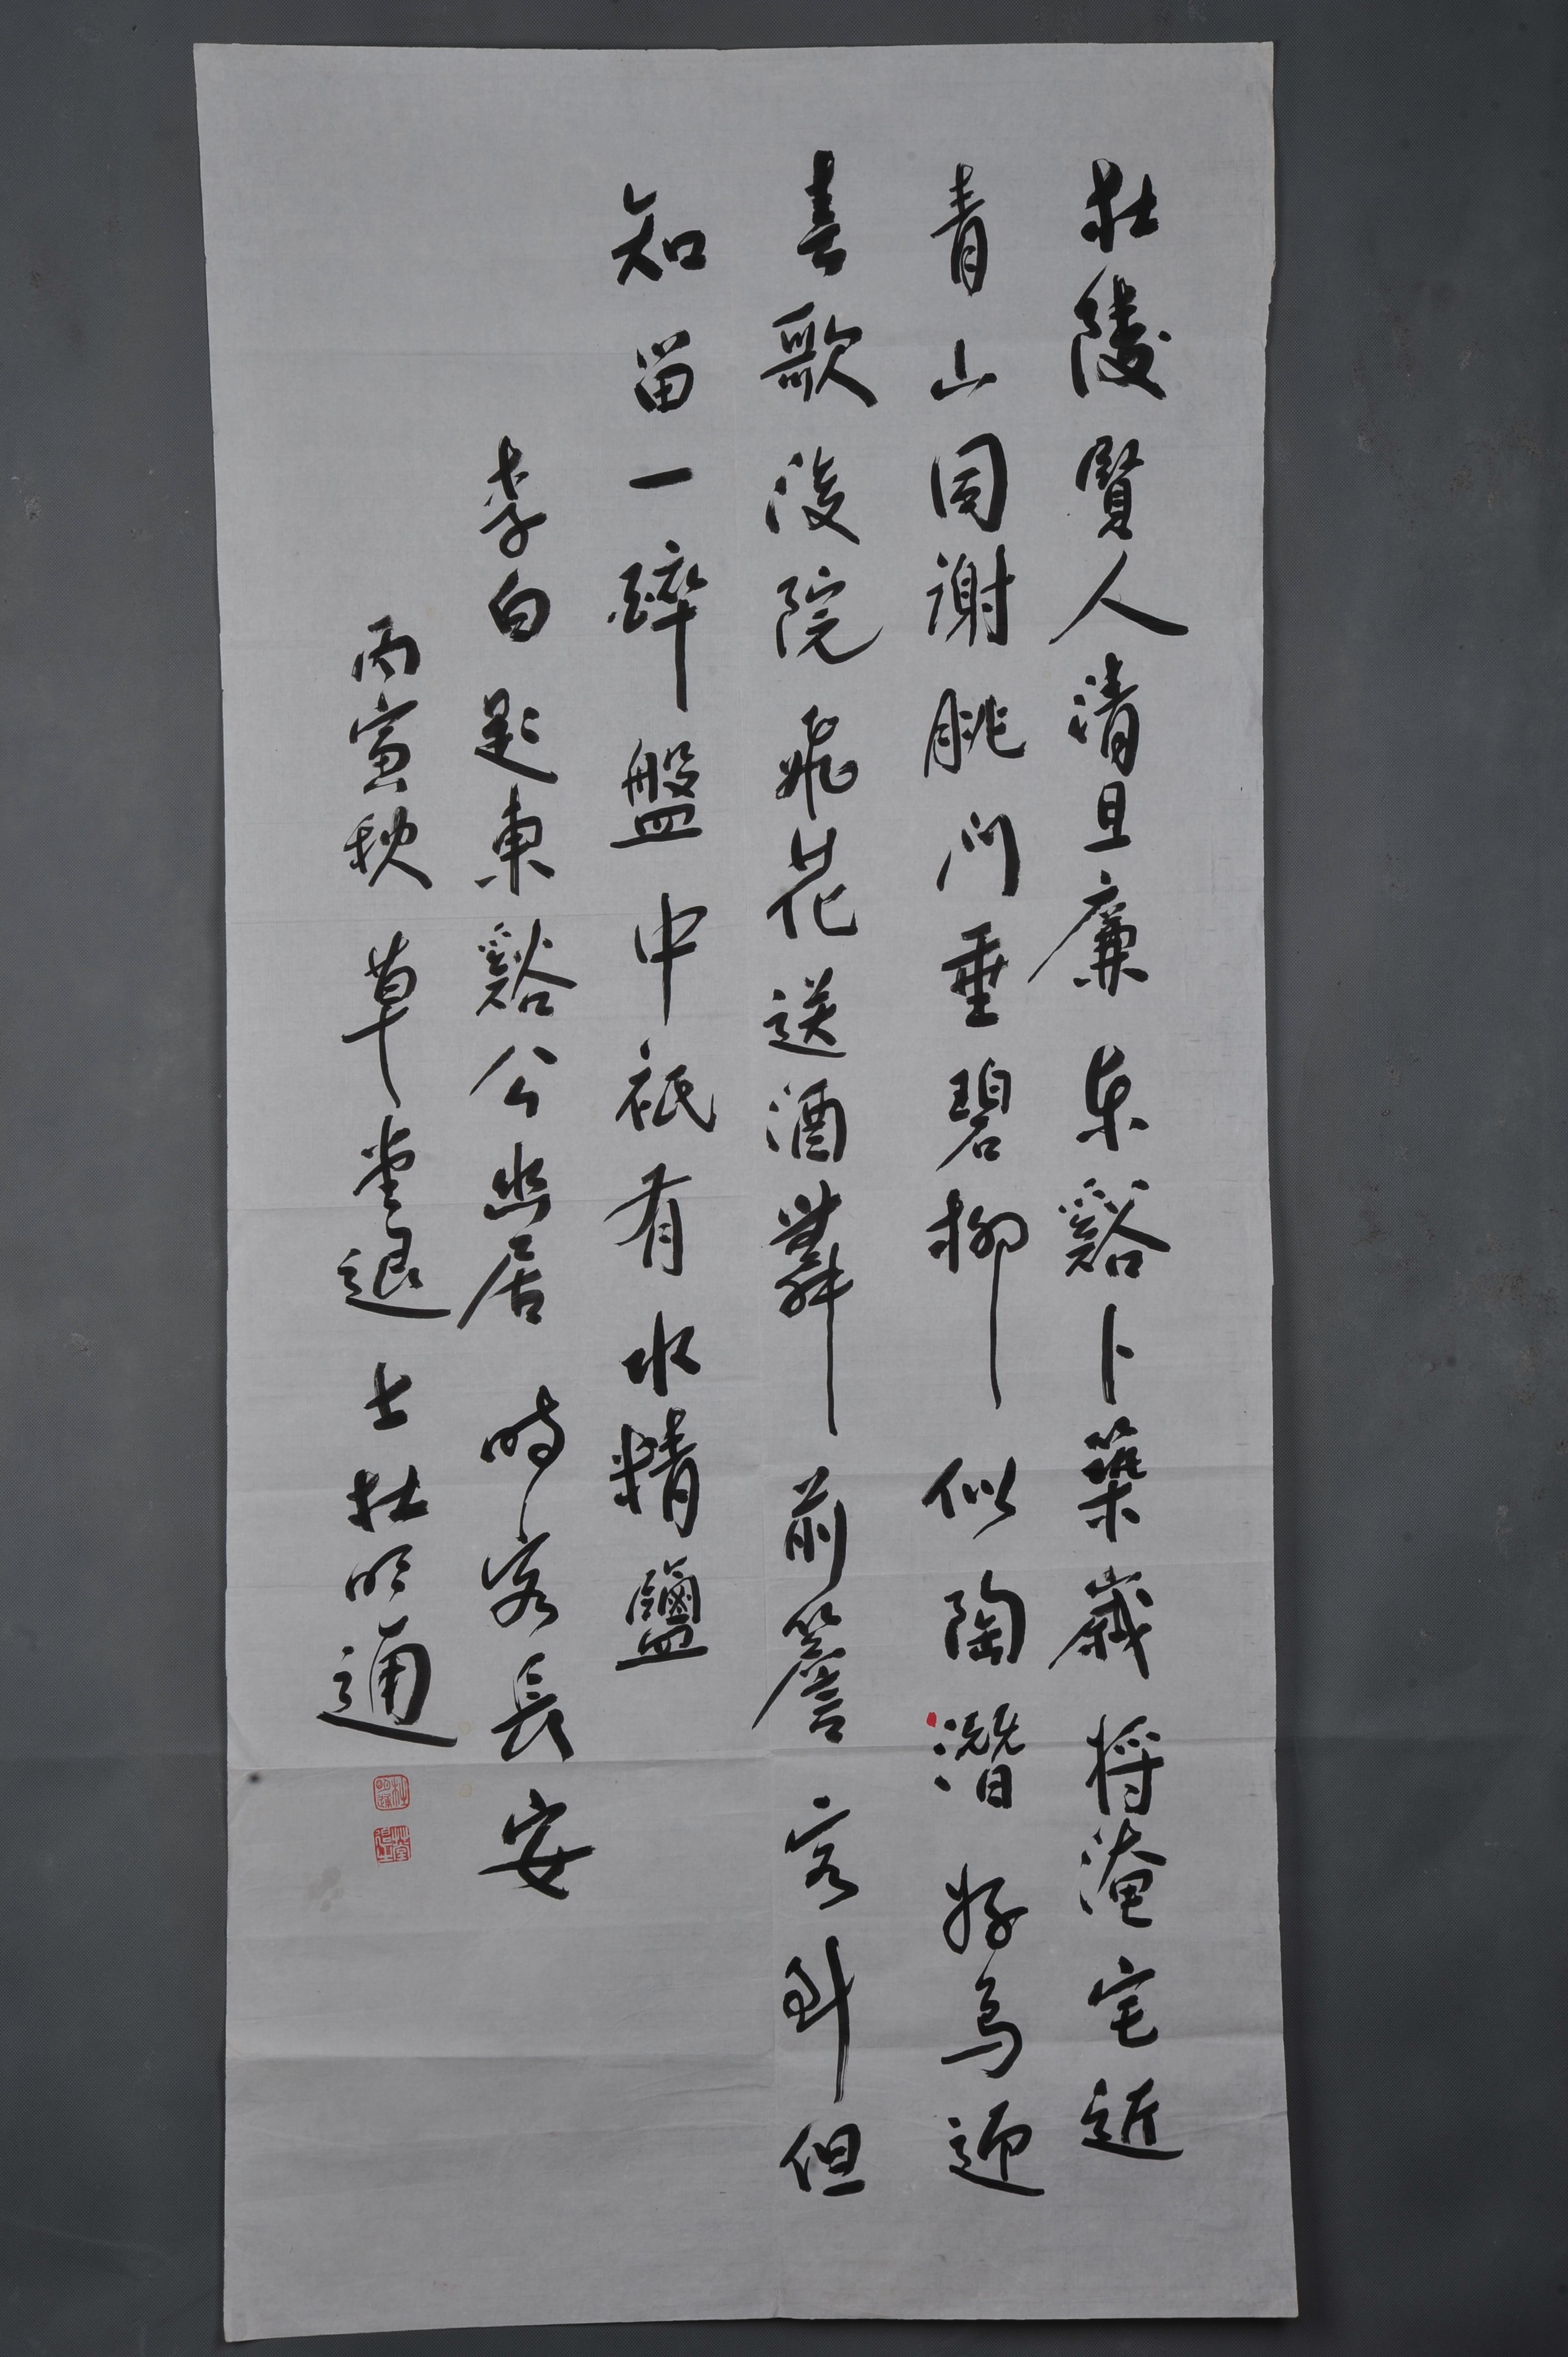 杜陵賢人清且廉東谿卜築歲将淹宅近
青山同謝朓门垂碧柳似陶潛好鸟迎
春歌後院飛花送酒舞前簷客到但
知留一醉盤中祇有水精鹽
李白題東谿公幽居時客長安
丙寅秋草堂退士杜明通